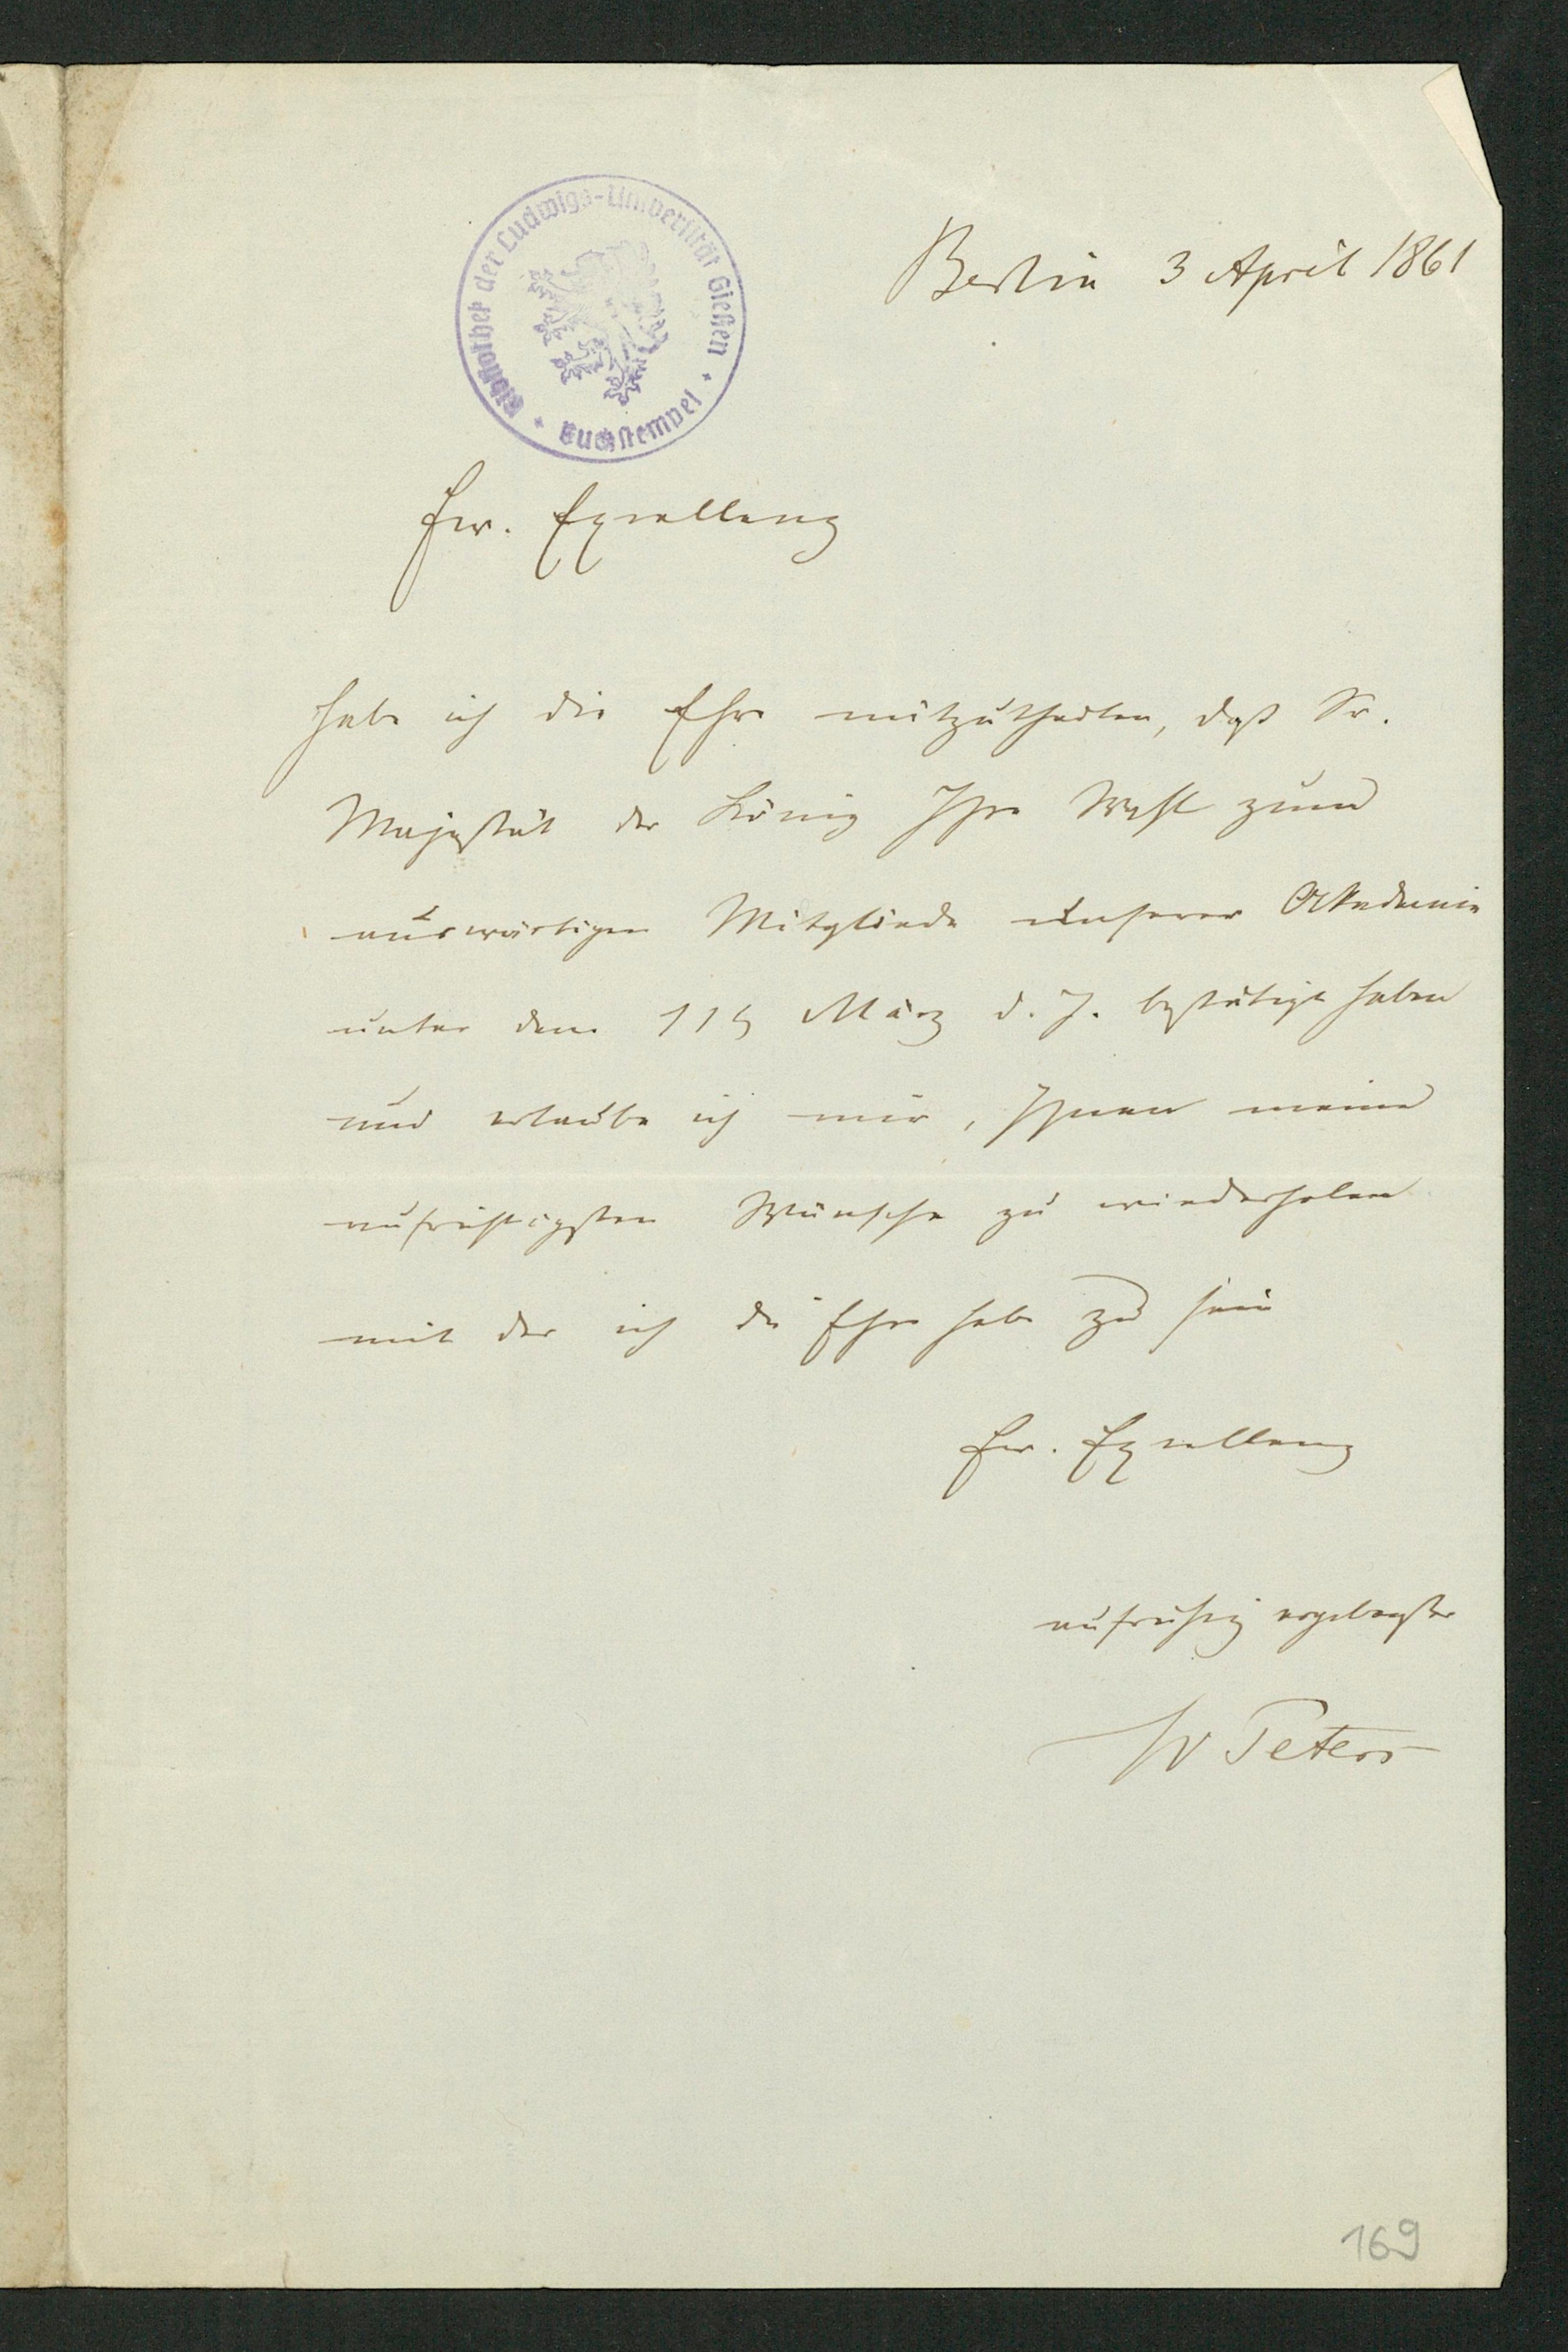 Bibliothek der Ludwigs-Universität Gießen
Buchstempel
Berlin 3 April 1861
Ew. Excellenz
habe ich die Ehre mitzutheilen, daß Sr.
Majestät der König Ihre Wahl zum
auswärtigen Mitgliede unserer Akademie
unter dem 11 März d. J. bestätigt haben
und erlaube ich mir, Ihnen meine
aufrichtigsten Wünsche zu wiederholen
mit der ich die Ehre habe zu sein
Ew. Excellenz
aufrichtig ergebenster
W Peters
169